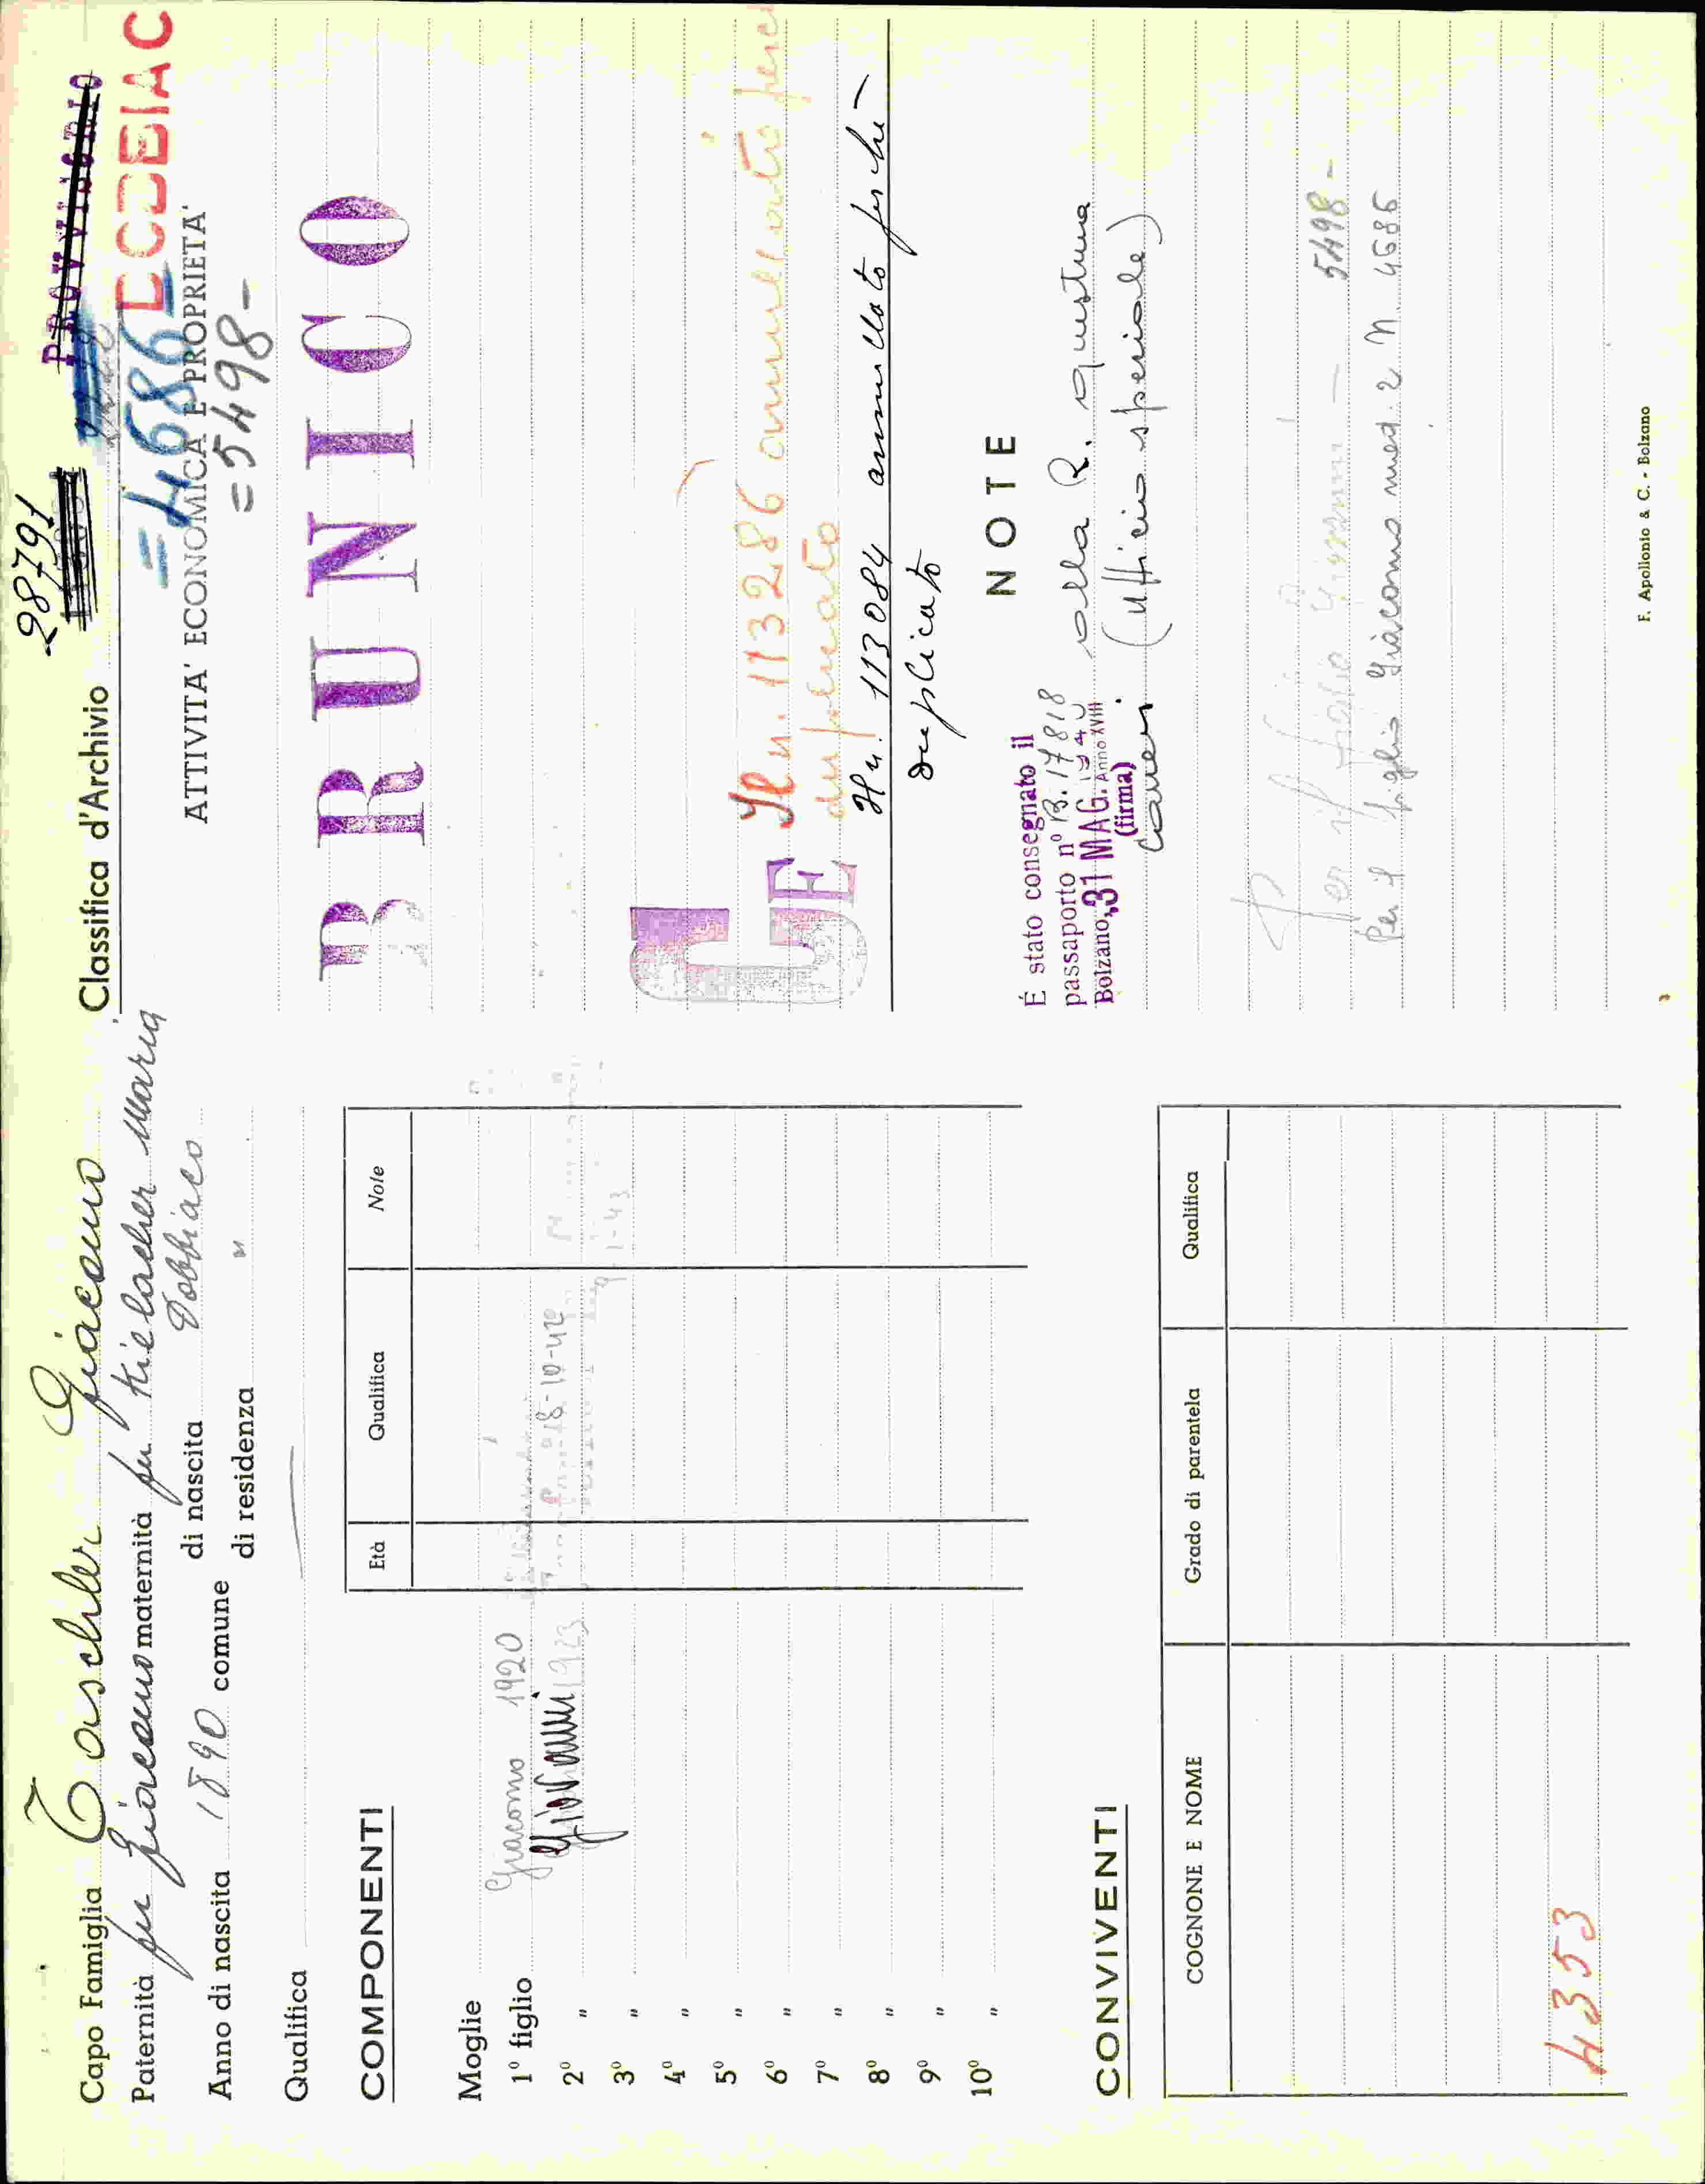 Capo Famiglia Taschler Giacomo
Paternità fu Giacomo maternità fu Kielacher Maria
Anno di nascita 1890 comune di nascita Dobbiaco
di residenza "
Qualifica
COMPONENTI
Età Qualifica Note
Moglie
1º figlio Giacomo 1920
2º " Giovanni 1923 18-10-42
1-43
3º "
4º "
5º "
6º "
7º "
8º "
9º "
10º "
CONVIVENTI
COGNONE E NOME Grado di parentela Qualifica
4353
28791
PROVVISORIO
Classifica d'Archivio
=4686
ATTIVITA' ECONOMICA E PROPRIETA'
=5498-
BRUNICO
GE
Il n. 113286 annullato perchè
duplicato
Il n. 113084 annullato perchè -
duplicato
NOTE
É stato consegnato il
passaporto nº B. 17818 alla R. questura
Bolzano, 31 MAG. 1940 Anno XVIII
(firma) (ufficio speciale)
Per il figlio Giovanni - 5498-
Per il figlio Giacomo med. 2 N. 4686
F. Apollonio & C. - Bolzano